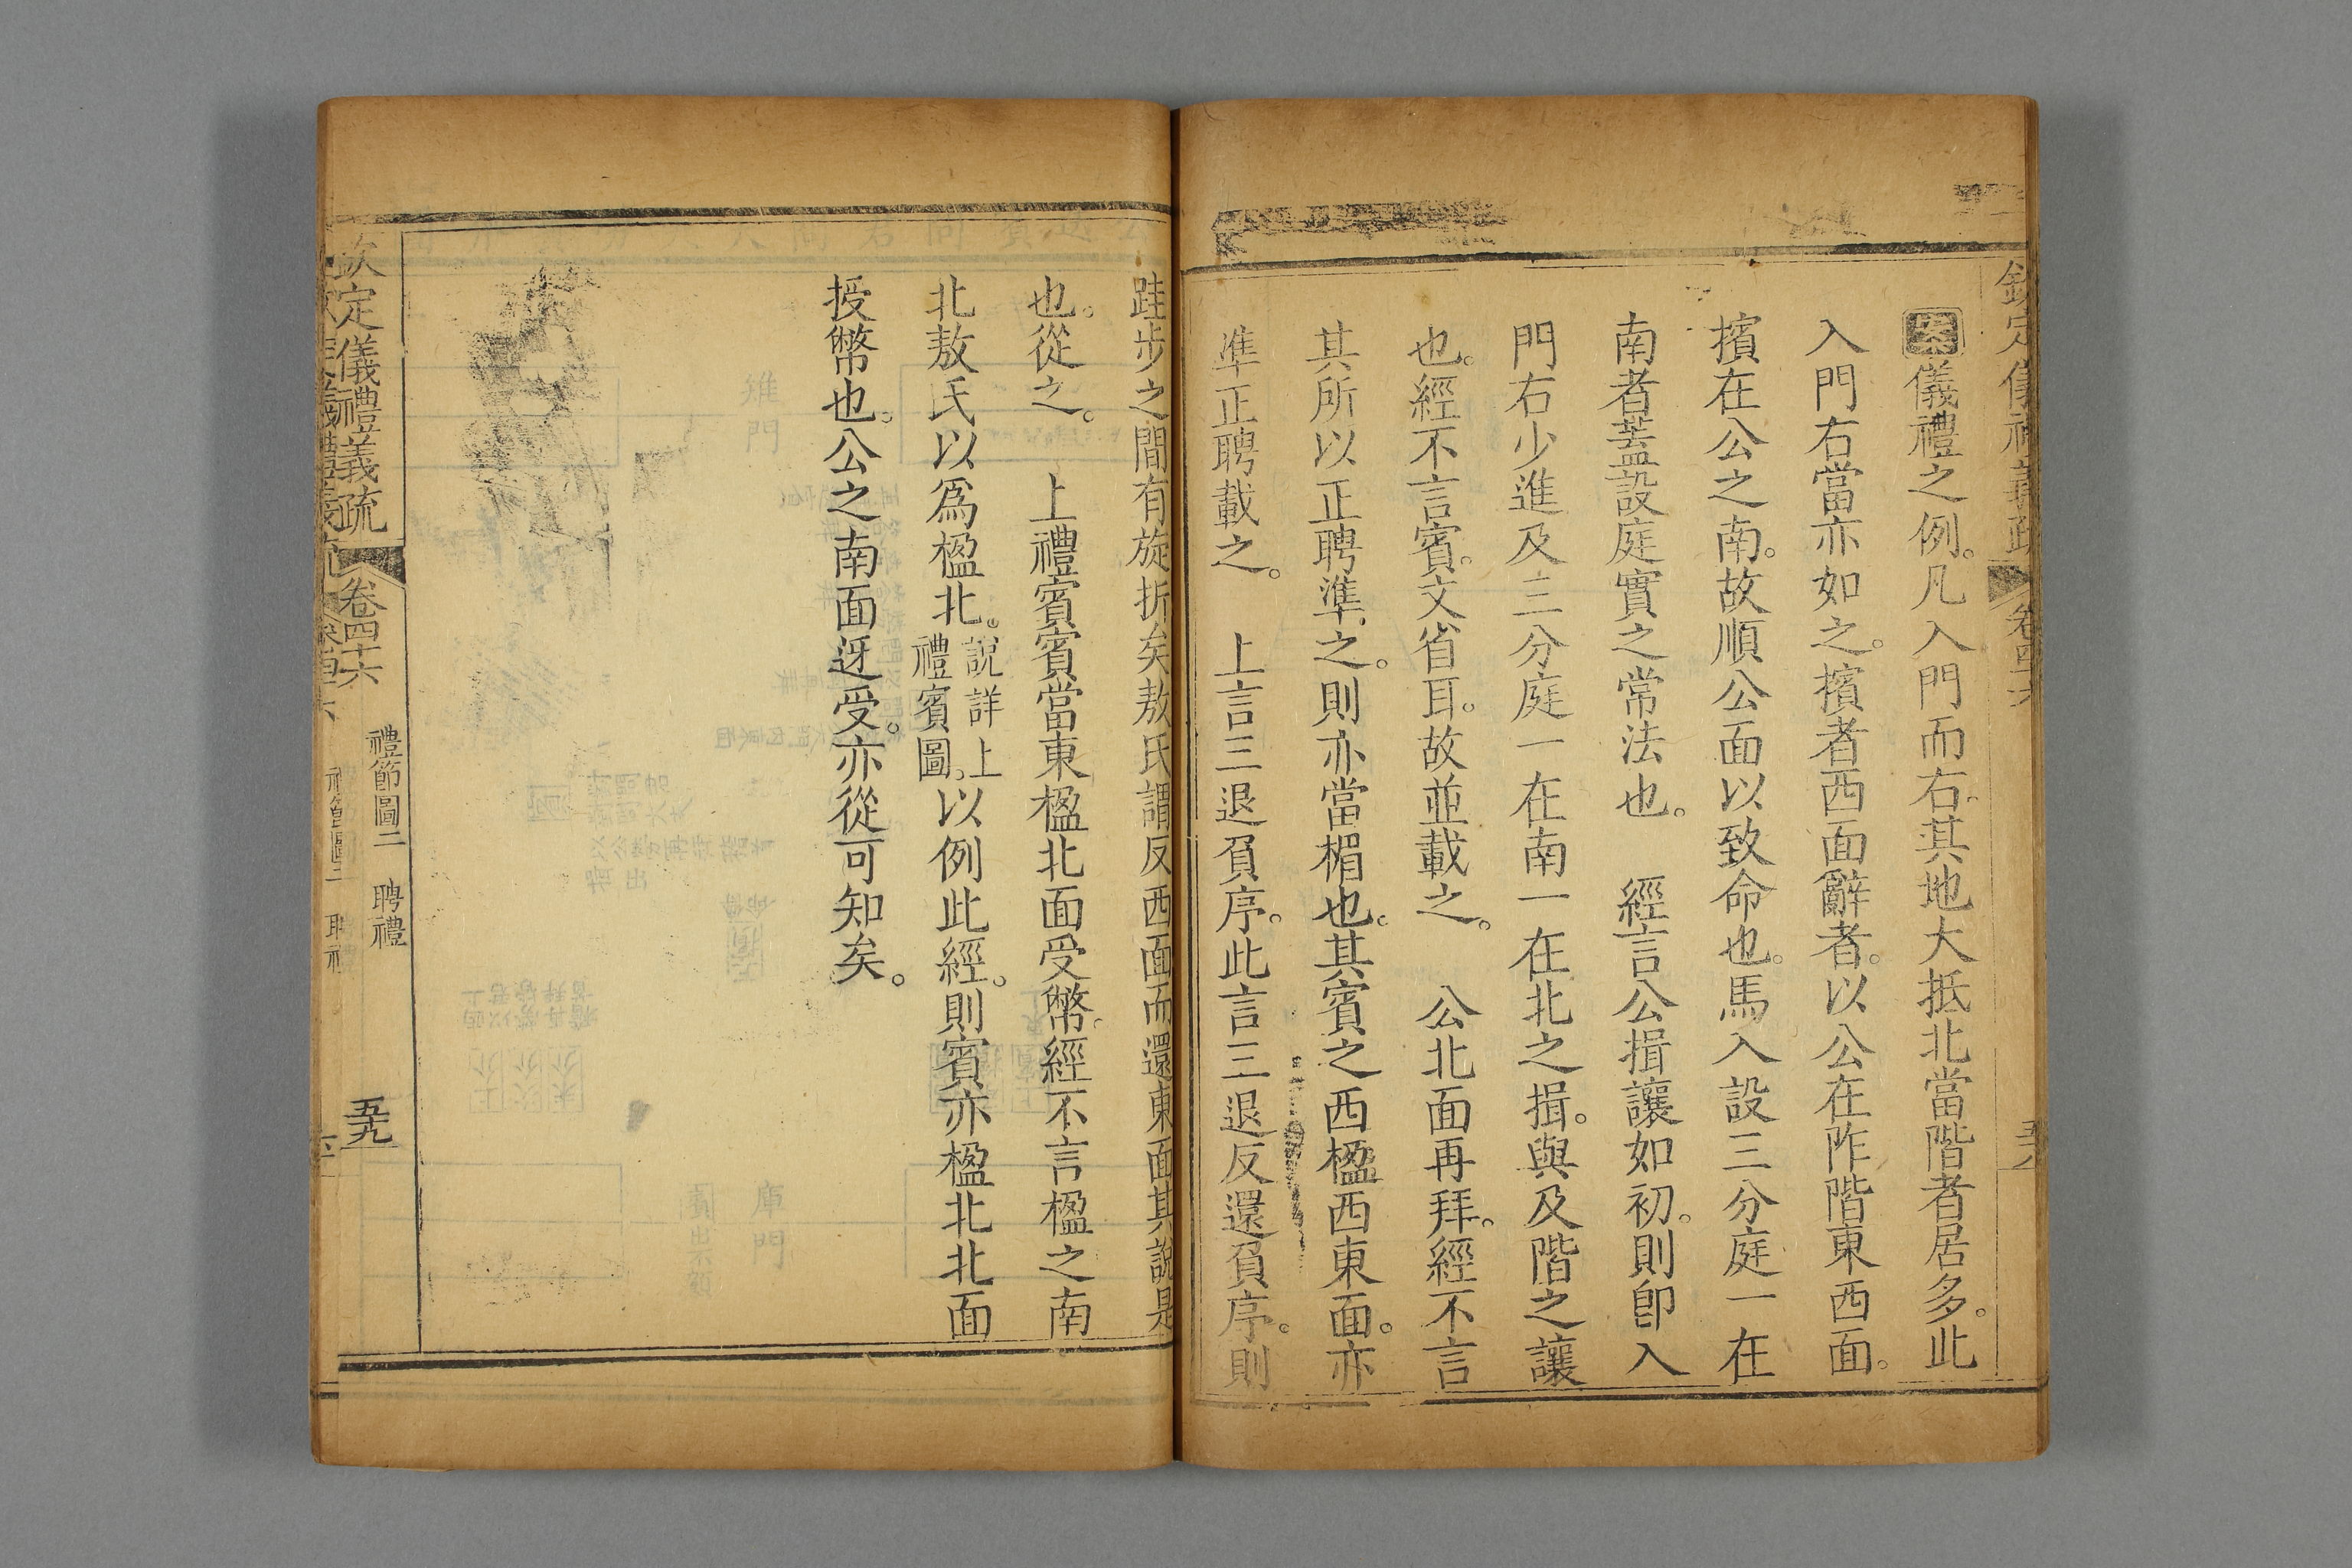 欽定儀禮義疏 卷四十六 五十八
案儀禮之例。凡入門而右。其地大抵北當階者居多。此
入門右當亦如之。擯者西面辭者。以公在阼階東西面。
擯在公之南。故順公面以致命也。馬入設三分庭一在
南者蓋設庭實之常法也。 經言公揖讓如初。則卽入
門右少進及三分庭一在南一在北之揖。與及階之讓
也。經不言賓。文省耳。故並載之。 公北面再拜。經不言
其所以正聘準之。則亦當楣也。其賓之西楹西東面。亦
準正聘載之。 上言三退負序。此言三退反還負序。則
跬步之間有旋折矣敖氏謂反西面而還東面其說是
也。從之。 上禮賓賓當東楹北面受幣。經不言楹之南
北敖氏以爲楹北。說詳上禮賓圖。以例此經。則賓亦楹北北面
授幣也。公之南面迓受。亦從可知矣。
欽定儀禮義疏 卷四十六 禮節圖二 聘禮 五十九